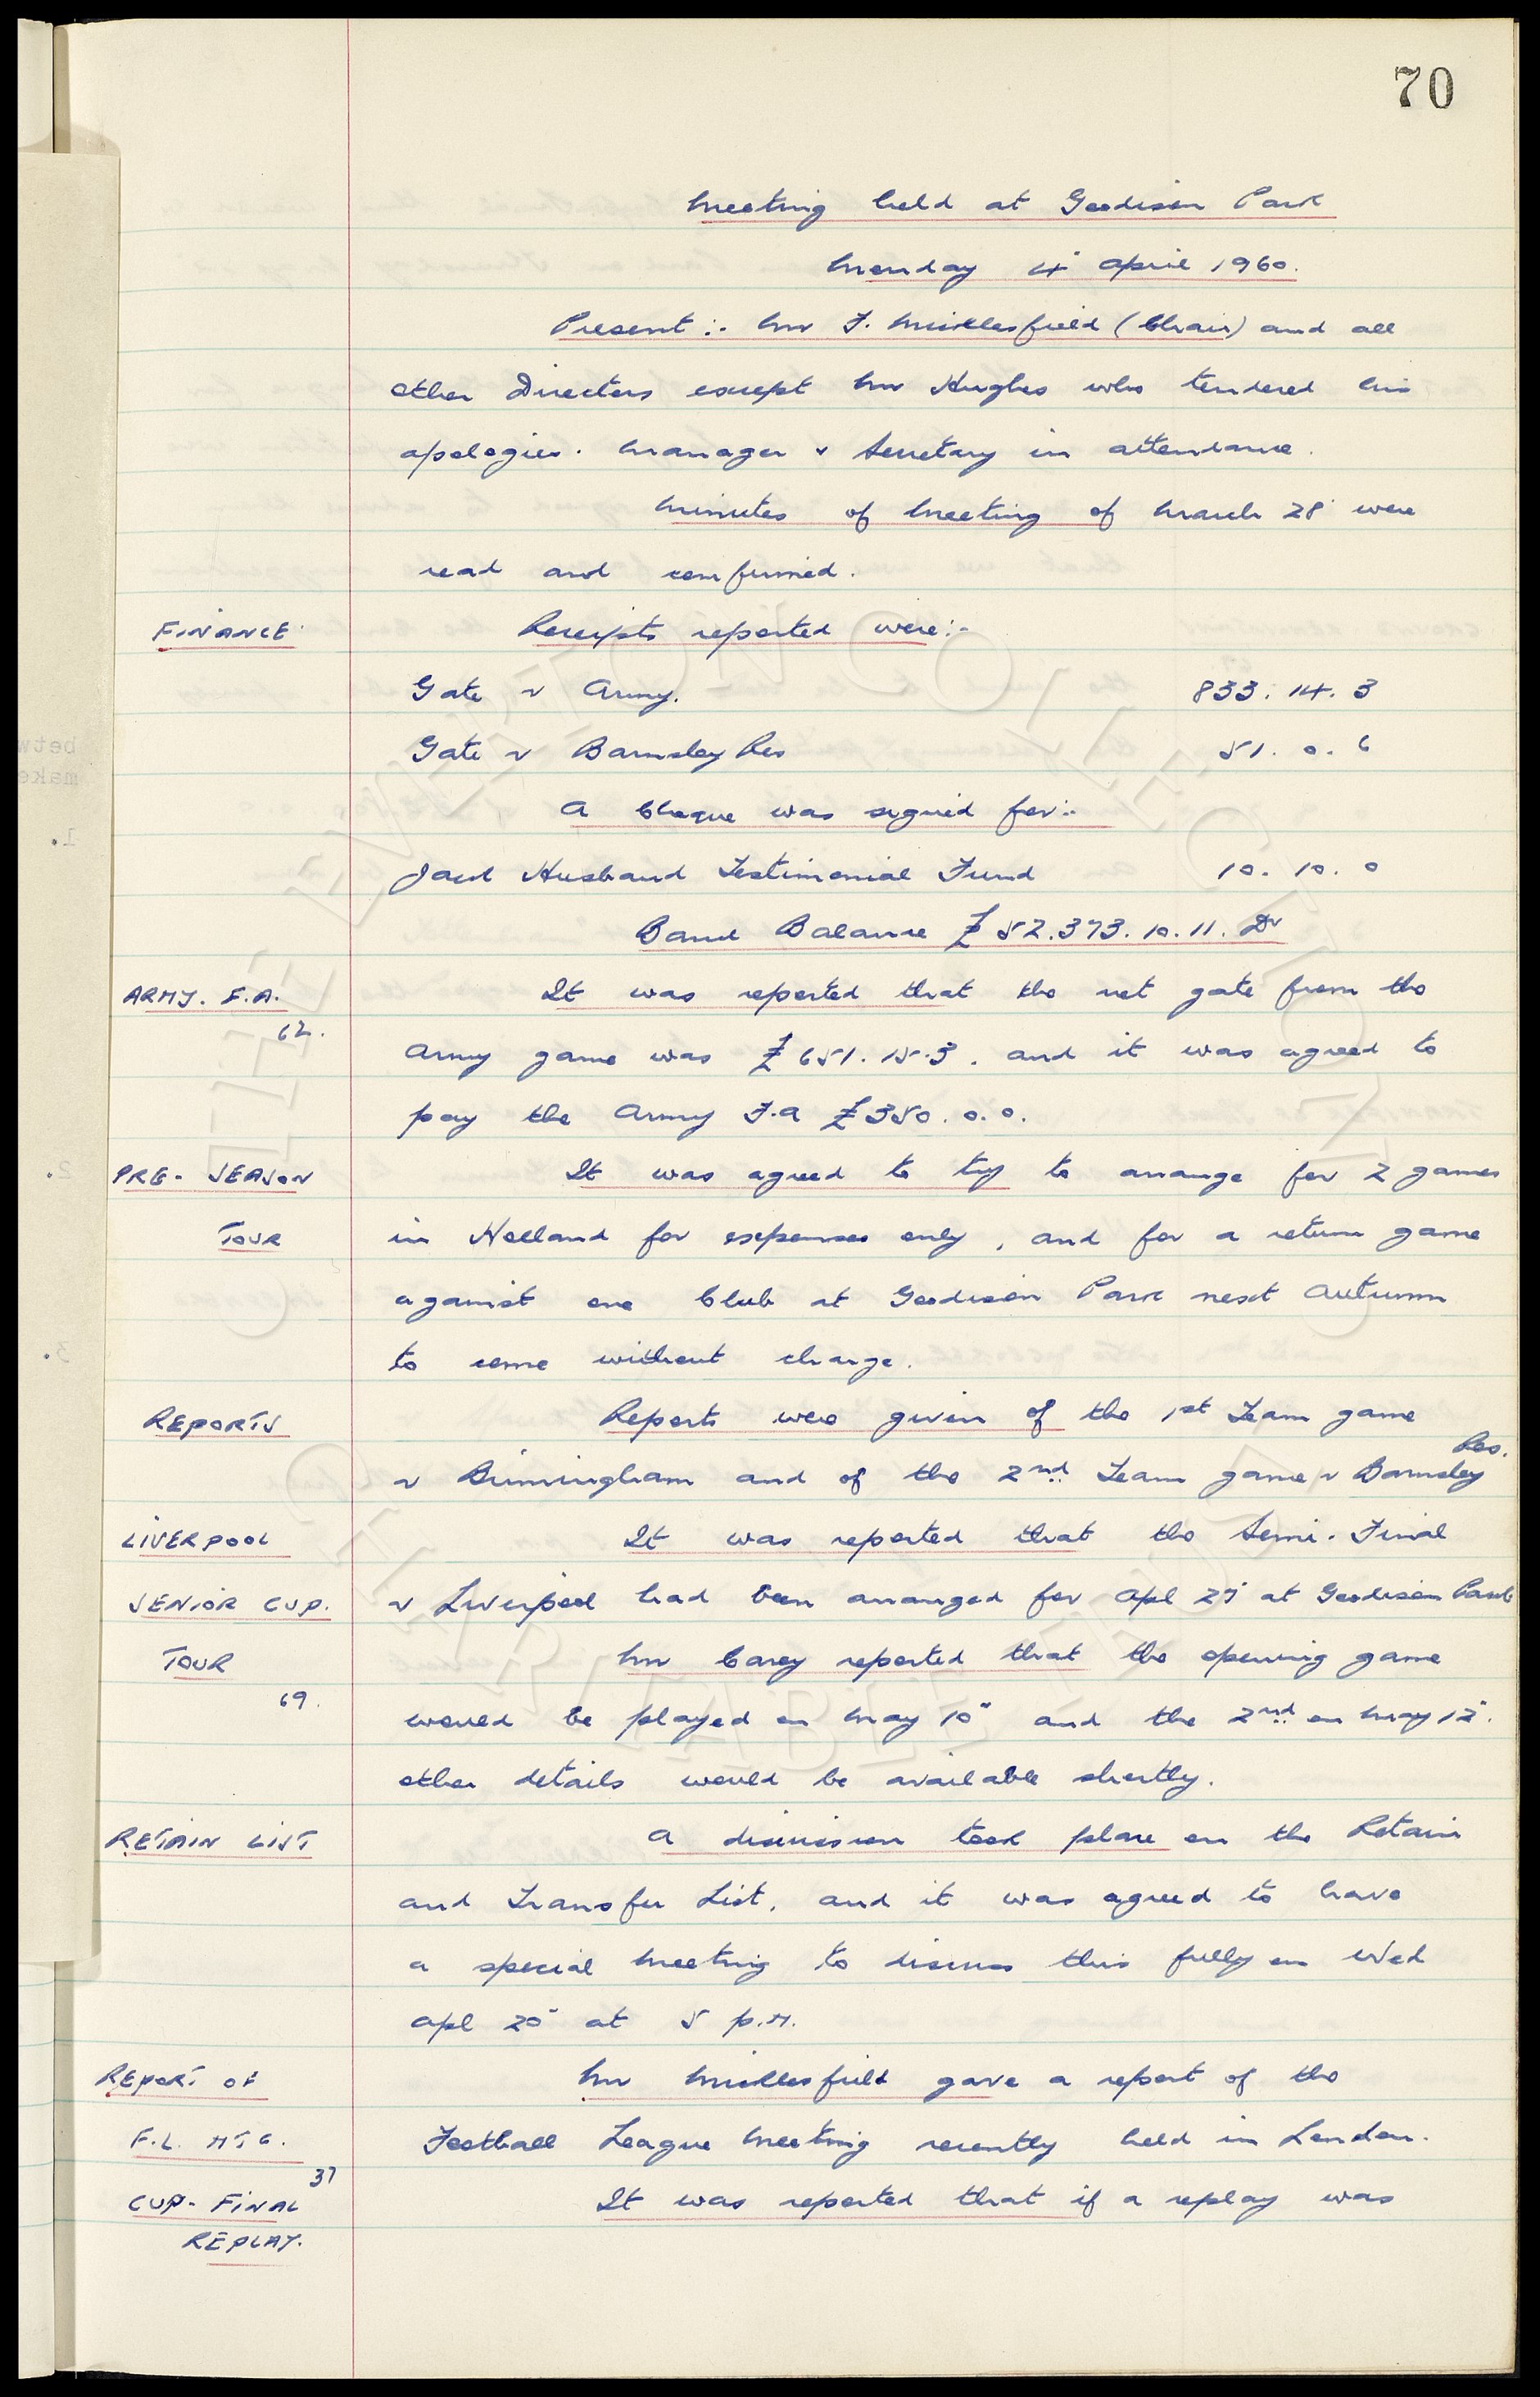 70
Meeting held at Goodison Park
Monday 4" April 1960.
Present :- Mr F. Micklesfield (Chair) and all
other Directors except Mr Hughes who tendered his
apologies. Manager & Secretary in attendance.
Minutes of Meeting of March 28" were
read and confirmed.
FINANCE Receipts reported were:-
Gate v Army. 833. 14. 3
Gate v Barnsley Res 51. 0. 6
A Cheque was signed for:-
Jack Husband Testimonial Fund 10. 10. 0
Bank Balance £52.373.10.11. Dr
ARMY. F.A. It was reported that the net gate from the
62.
Army game was £651.15.3. and it was agreed to
pay the Army F.A £350.0.0.
PRE-SEASON It was agreed to try to arrange for 2 games
TOUR in Holland for expenses only, and for a return game
against one Club at Goodison Park next Autumn
to come without charge.
REPORTS Reports were given of the 1st Team game
Res.
v Birmingham and of the 2nd Team game v Barnsley
LIVERPOOL It was reported that the Semi-Final
SENIOR CUP. v Liverpool had been arranged for Apl 27" at Goodison Park
TOUR Mr Carey reported that the opening game
69.
would be played on May 10" and the 2nd on May 12".
other details would be available shortly.
RETAIN LIST A discussion took place on the Retain
and Transfer List, and it was agreed to have
a special Meeting to discuss this fully on Wed
Apl 20" at 5 p.m.
REPORT OF Mr Micklesfield gave a report of the
F.L. MTG. Football League Meeting recently held in London.
37
CUP-FINAL It was reported that if a replay was
REPLAY.